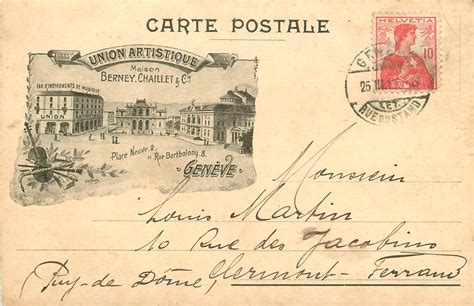 CARTE POSTALE
UNION ARTISTIQUE
Maison
BERNEY, CHAILLET & Cie
FAB. D'INSTRUMENTS DE MUSIQUE
UNION
Place Neuve, 2,
" Rue Bartholony, 8.
GENÈVE
HELVETIA
10
25 III
LET.
RUE DU STAND
Monsieur
Louis Martin
10 Rue des Jacobins
Puy-de Dôme, Clermont-Ferrand